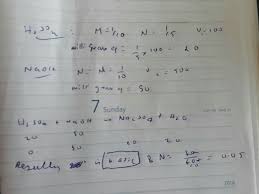 H₂SO₄ : M = 1/10 N = 1/5 V = 100
milli grams eq = 1/5 × 100 = 20
NaOH N = M = 1/10 V = 500
milli gram eq = 50
7 Sunday
H₂SO₄ + NaOH → Na₂SO₄ + H₂O
20 50
0 30 20 20
Resulting is basic & N = 30/600 = 0.05